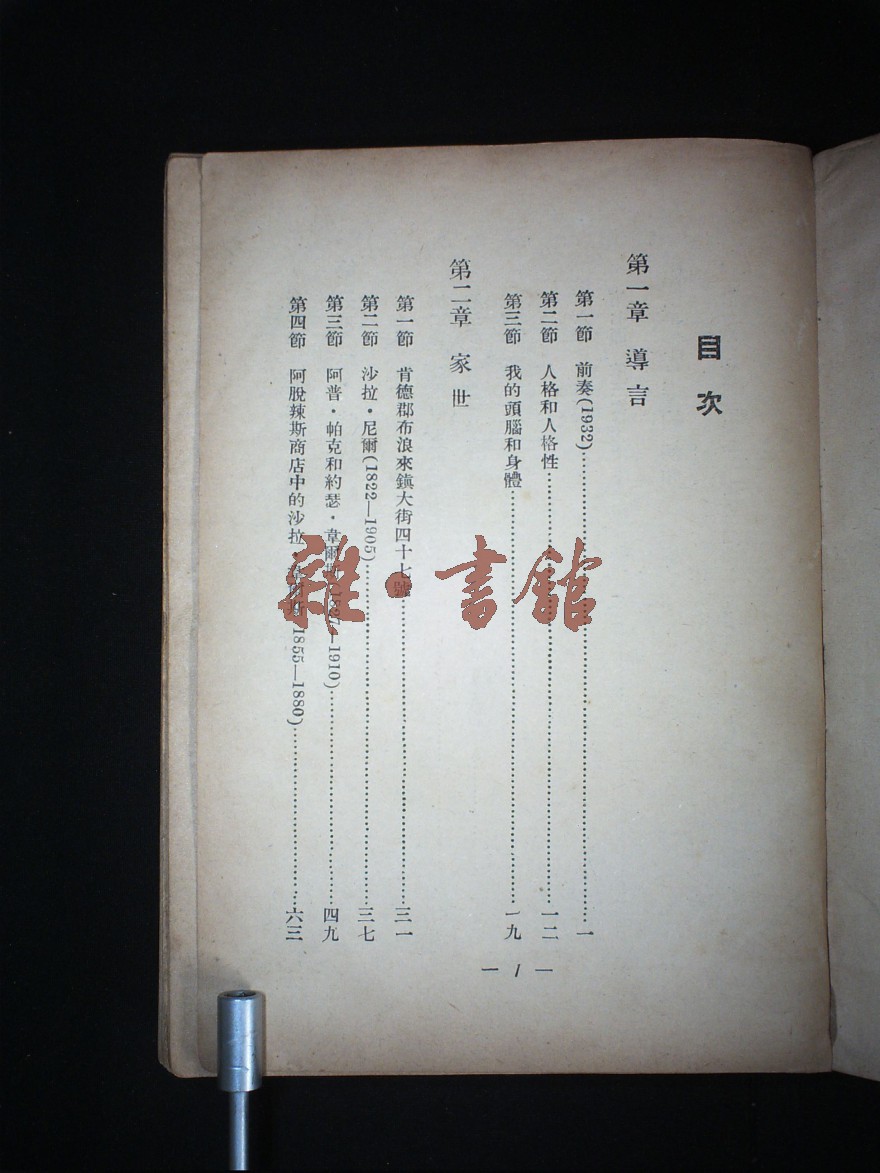 目次
第一章 導言
第一節 前奏(1932)……一
第二節 人格和人格性……一二
第三節 我的頭腦和身體……一九
第二章 家世
第一節 肯德郡布浪來鎮大街四十七號……三一
第二節 沙拉・尼爾(1822—1905)……三七
第三節 阿普・帕克和約瑟・韋爾 —1910)……四九
第四節 阿脫辣斯商店中的沙拉・ 1855—1880)……六三
— 1 —
雜・書館